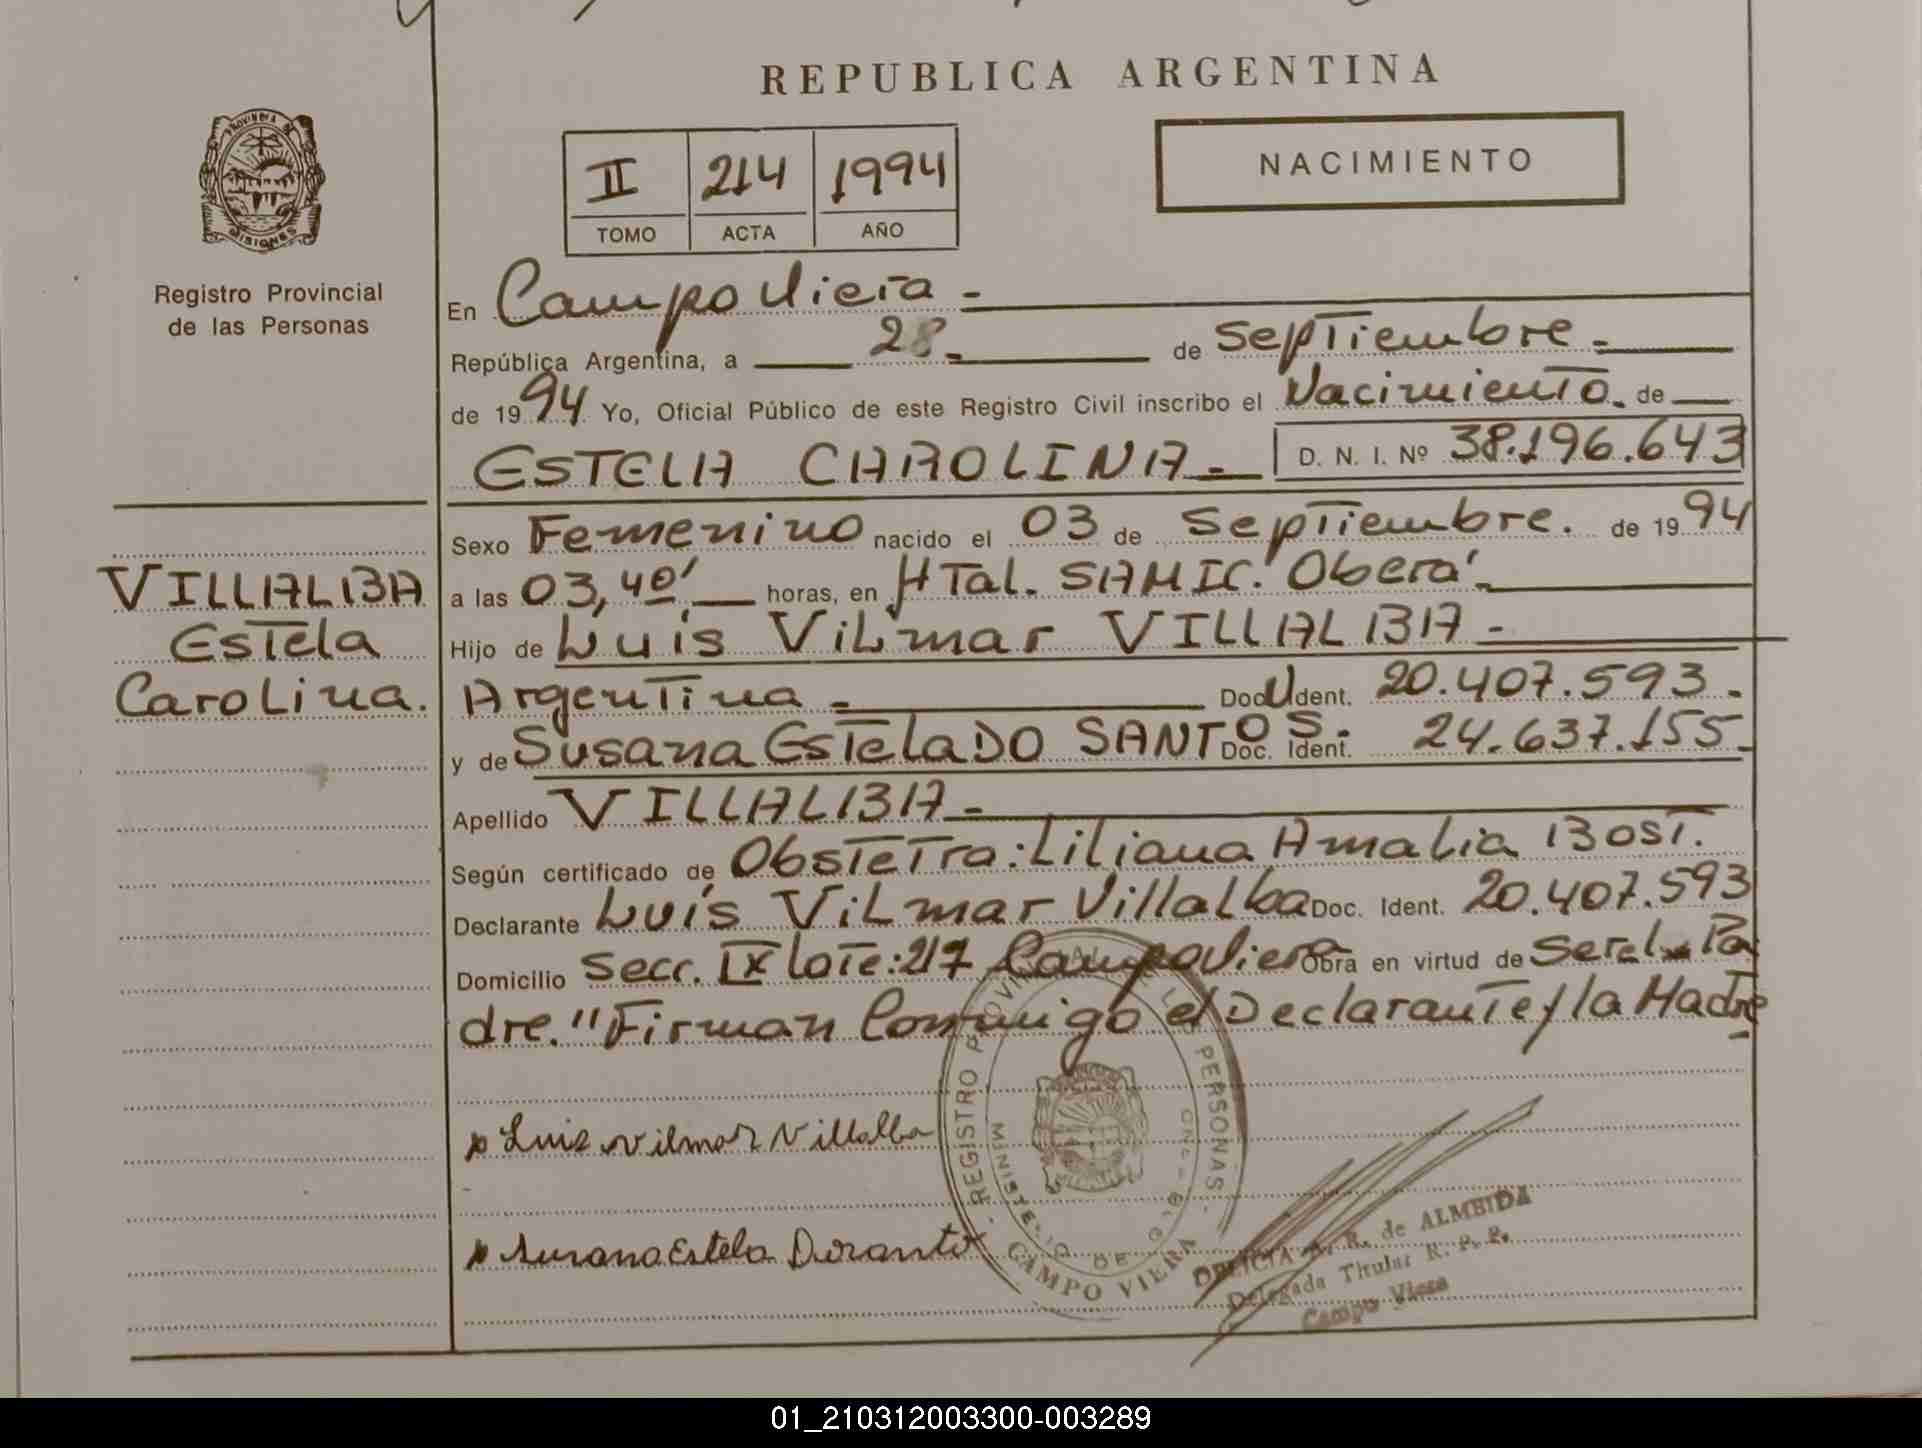 REPUBLICA ARGENTINA
PROVINCIA DE
MISIONES
Registro Provincial
de las Personas
II 214 1994
TOMO ACTA AÑO
NACIMIENTO
En Campo Viera -
República Argentina, a 28 - de Septiembre -
de 1994 Yo, Oficial Público de este Registro Civil inscribo el Nacimiento. de
ESTELA CAROLINA - D. N. I. Nº 38.196.643
Sexo Femenino nacido el 03 de Septiembre. de 1994
VILLALBA
Estela
Carolina.
a las 03,40' horas, en HTal. SAMIC. "Oberá" -
Hijo de Luis Vilmar VILLALBA -
Argentina - Doc. U Ident. 20.407.593 -
y de Susana Estela DO SANTOS. Doc. Ident. 24.637.155 -
Apellido VILLALBA -
Según certificado de Obstetra: Liliana Amalia Bost.
Declarante Luís Vilmar Villalba Doc. Ident. 20.407.593
Domicilio Secc. IX Lote: 217 Campo Viera Obra en virtud de Ser el Pa
dre." Firman Conmigo el Declarante y la Madre
-
Luiz Vilmar Villalba
Susana Estela Dosanto
REGISTRO PROVINCIAL DE LAS PERSONAS
MINISTERIO DE
CAMPO VIERA
DELICIA A. R. de ALMEIDA
Delegada Titular R. P. P.
Campo Viera
01_210312003300-003289